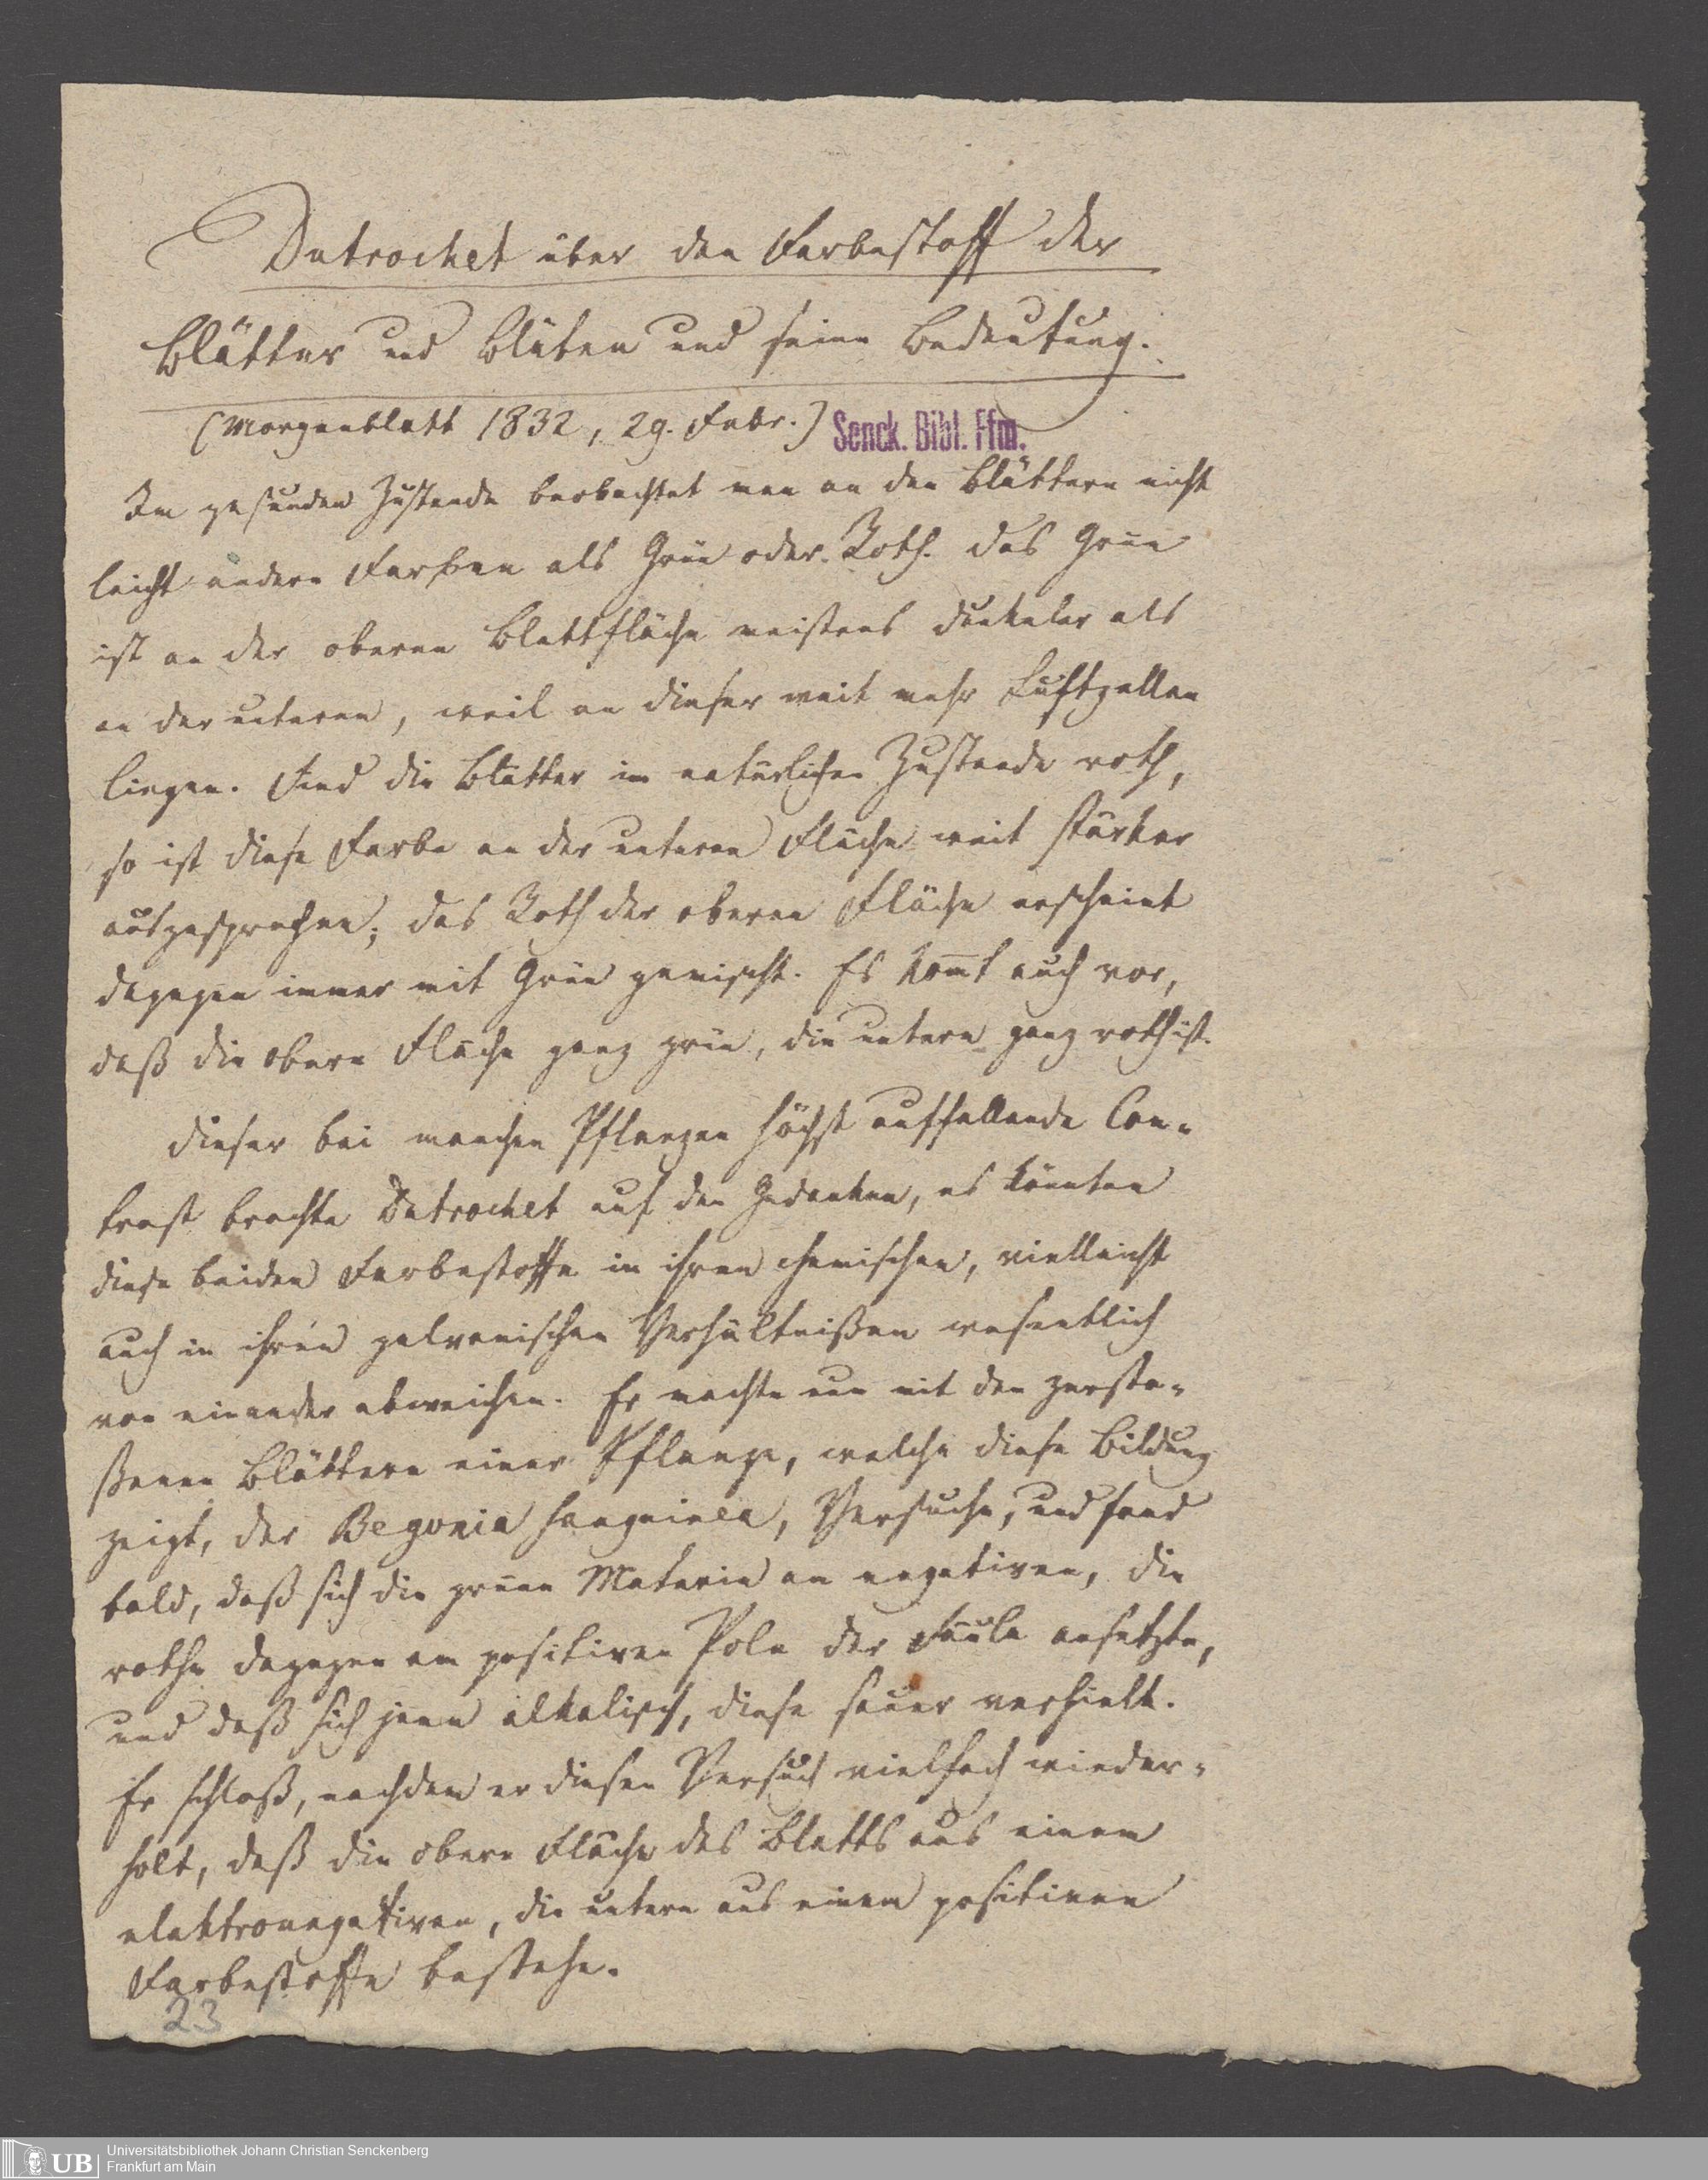 Dutrochet über den Farbestoff der
Blätter und Blüten und seine Bedeutung.
(Morgenblatt 1832, 29. Febr.)
Senck. Bibl. Ffm.
Im gesunden Zustande beobachtet man an den Blättern nicht
leicht andere Farben als Grün oder Roth. Das Grün
ist an der oberen Blattfläche meistens dunkeler als
an der unteren, weil an dieser weit mehr Luftzellen
liegen. Sind die Blätter im natürlichen Zustande roth,
so ist diese Farbe an der unteren Fläche weit stärker
ausgesprochen; das Roth der oberen Fläche erscheint
dagegen immer mit Grün gemischt. Es kom̄t auch vor,
daß die obere Fläche ganz grün, die untere ganz roth ist.
Dieser bei manchen Pflanzen höchst auffallende Con-
trast brachte Dutrochet auf den Gedanken, es könnten
diese beiden Farbestoffe in ihren chemischen, vielleicht
auch in ihren galvanischen Verhältnißen wesentlich
von einander abweichen. Er machte nun mit den zersto-
ßenen Blättern einer Pflanze, welche diese Bildung
zeigt, der Begonia sanguinea, Versuche, und fand
bald, daß sich die grüne Materie am negativen, die
rothe dagegen am positiven Pole der Säule ansetzte,
und daß sich jene alkalisch, diese sauer verhielt.
Er schloß, nachdem er diesen Versuch vielfach wieder-
holt, daß die obere Fläche des Blatts aus einem
elektronegativen, die untere aus einem positiven
Farbestoffe bestehe.
23
UB
Universitätsbibliothek Johann Christian Senckenberg
Frankfurt am Main